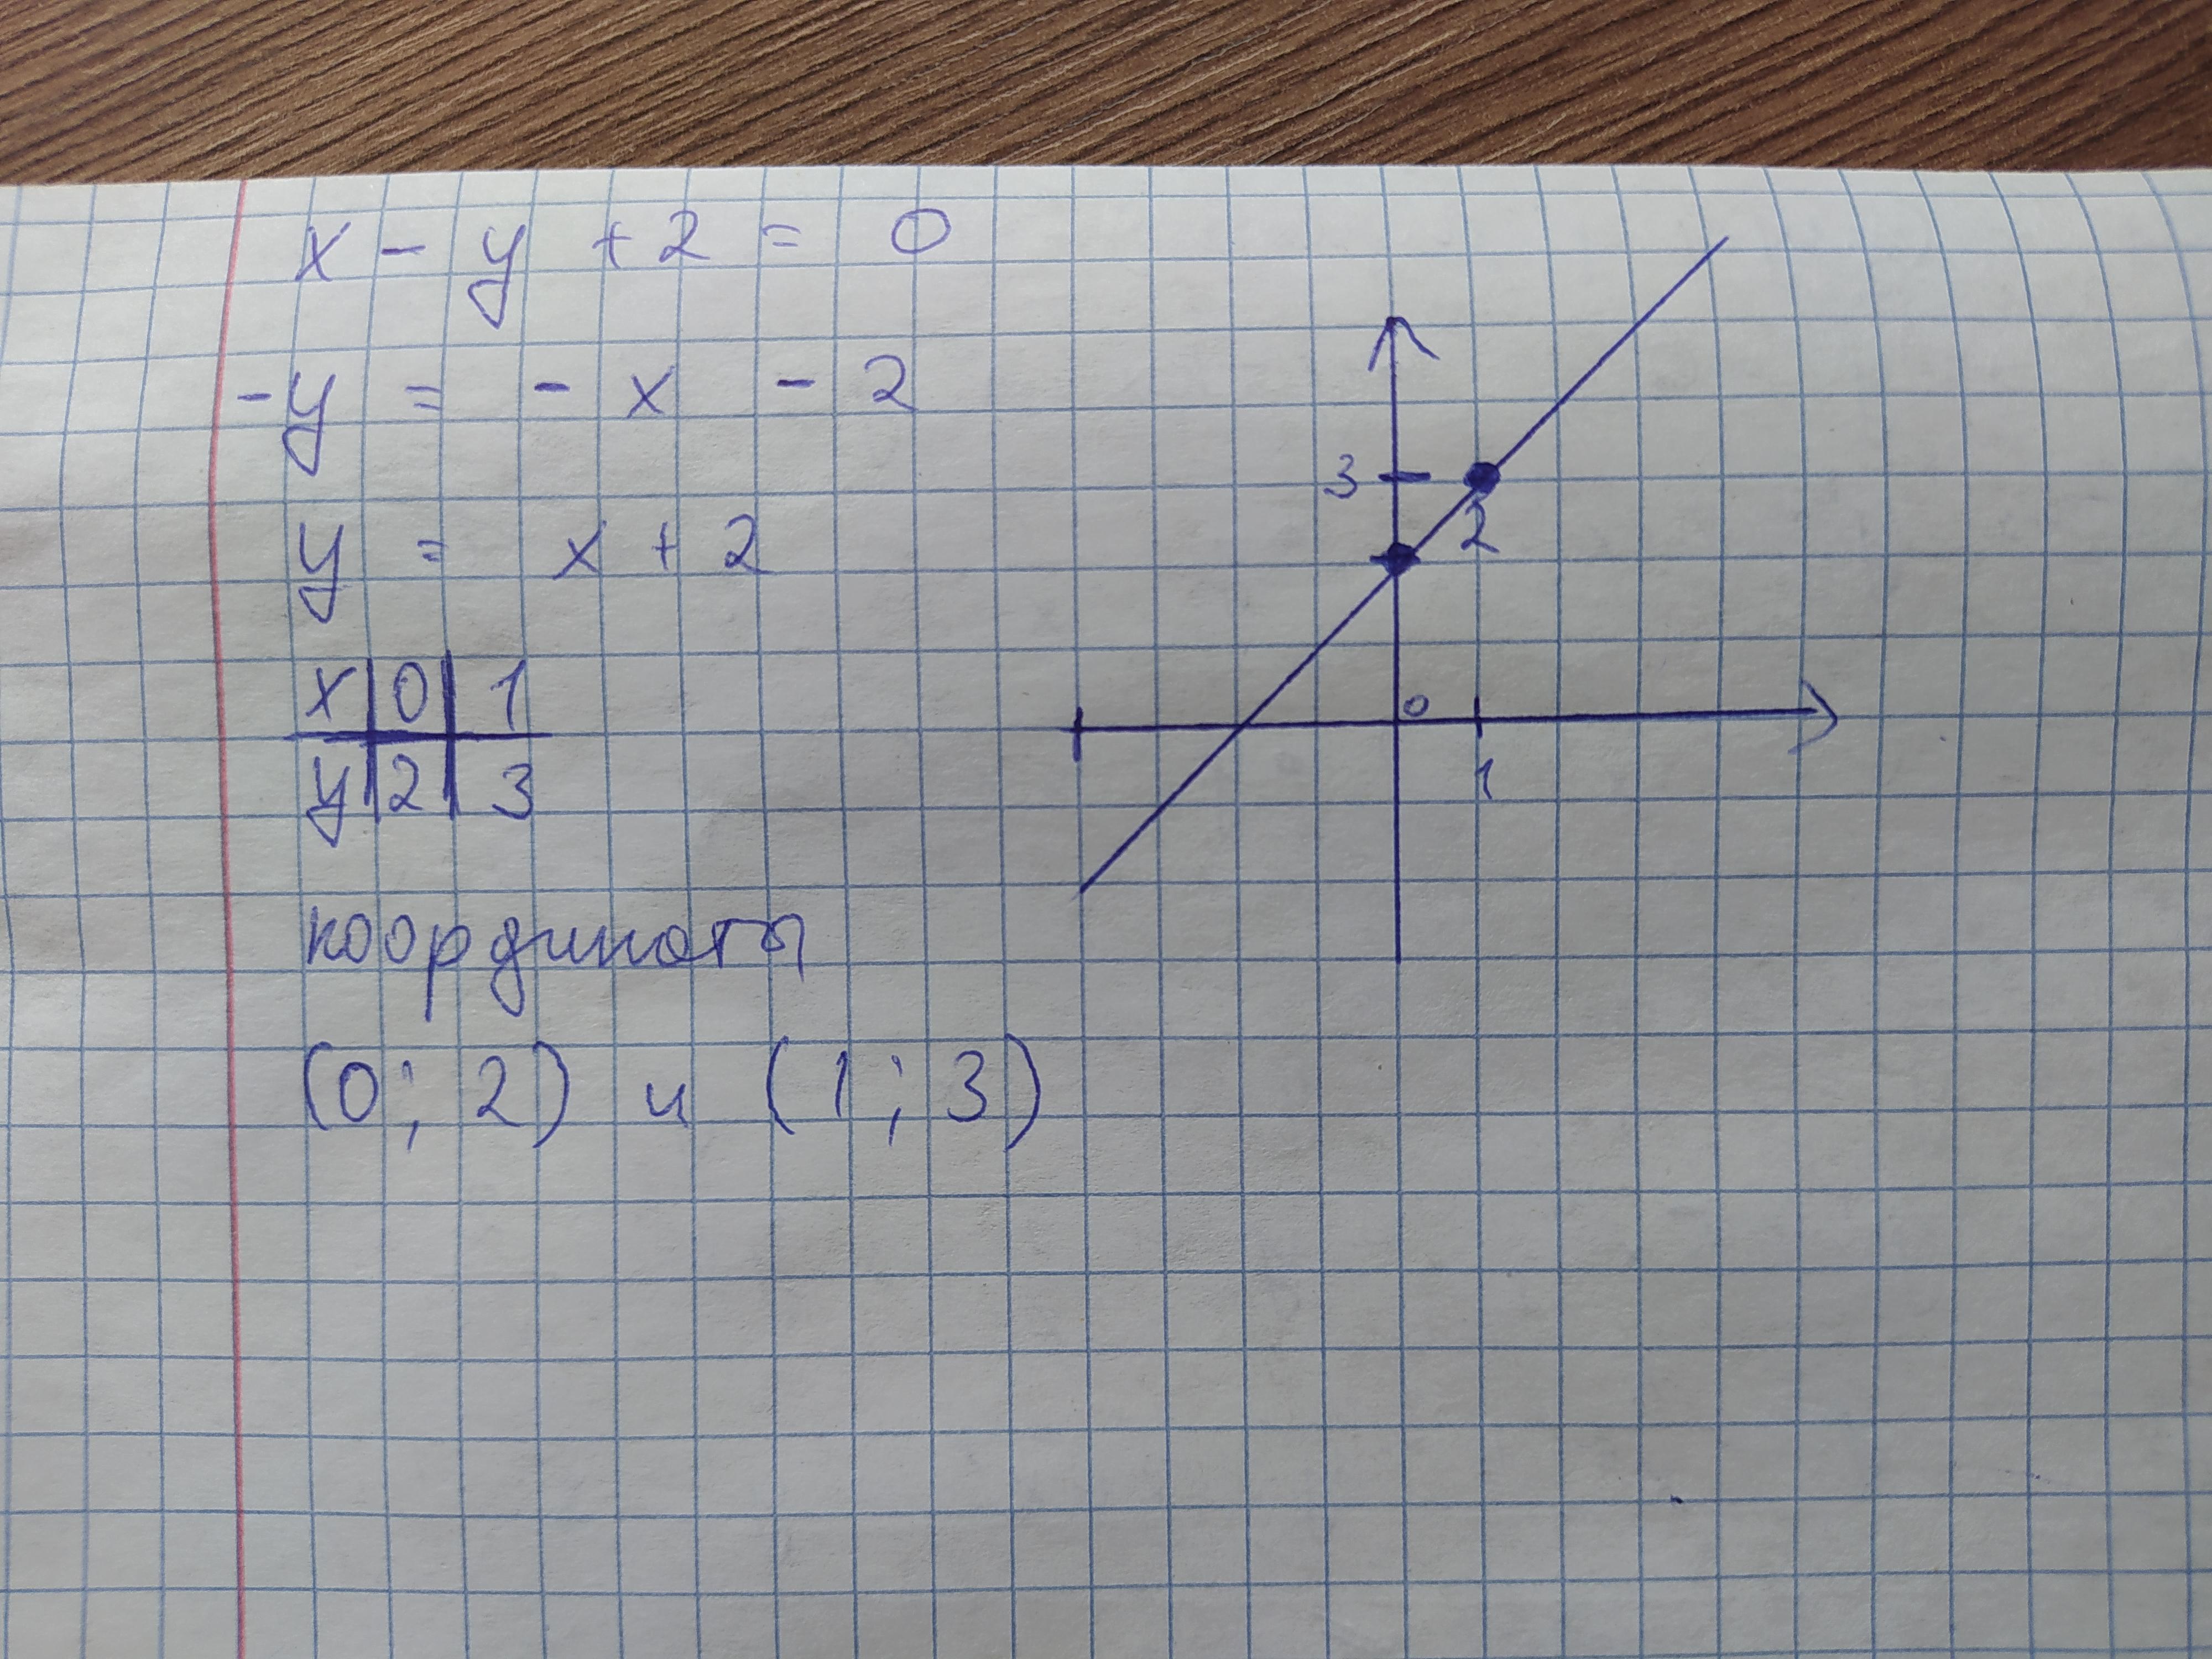 x - y + 2 = 0
-y = - x - 2
y = x + 2
x | 0 | 1
y | 2 | 3
координаты
(0; 2) и (1; 3)
3
2
0
1